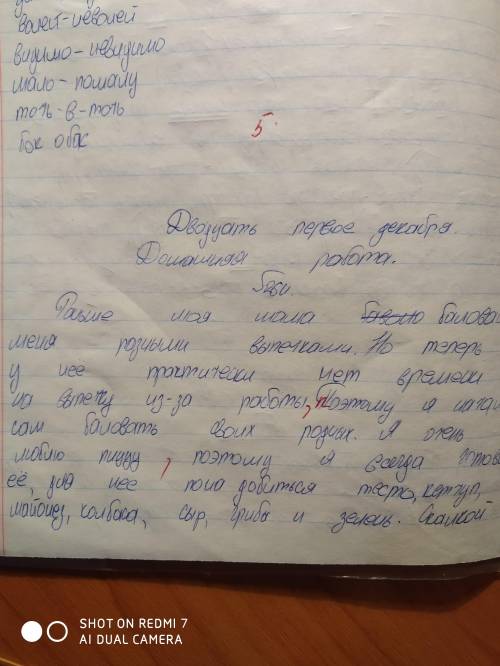 волей-неволей
видимо-невидимо
мало-помалу
точь-в-точь
бок о бок
5
Двадцать первое декабря.
Домашняя работа.
Раньше моя мама баловала
меня разными выпечками. Но теперь
у нее практически нет времени
на выпечку из-за работы, Поэтому я начал
сам баловать своих родных. Я очень
люблю пиццу, поэтому я всегда готовлю
её, для нее надобиться тесто, кетчуп,
майонез, колбаса, сыр, грибы и зелень. Скалкой
SHOT ON REDMI 7
AI DUAL CAMERA